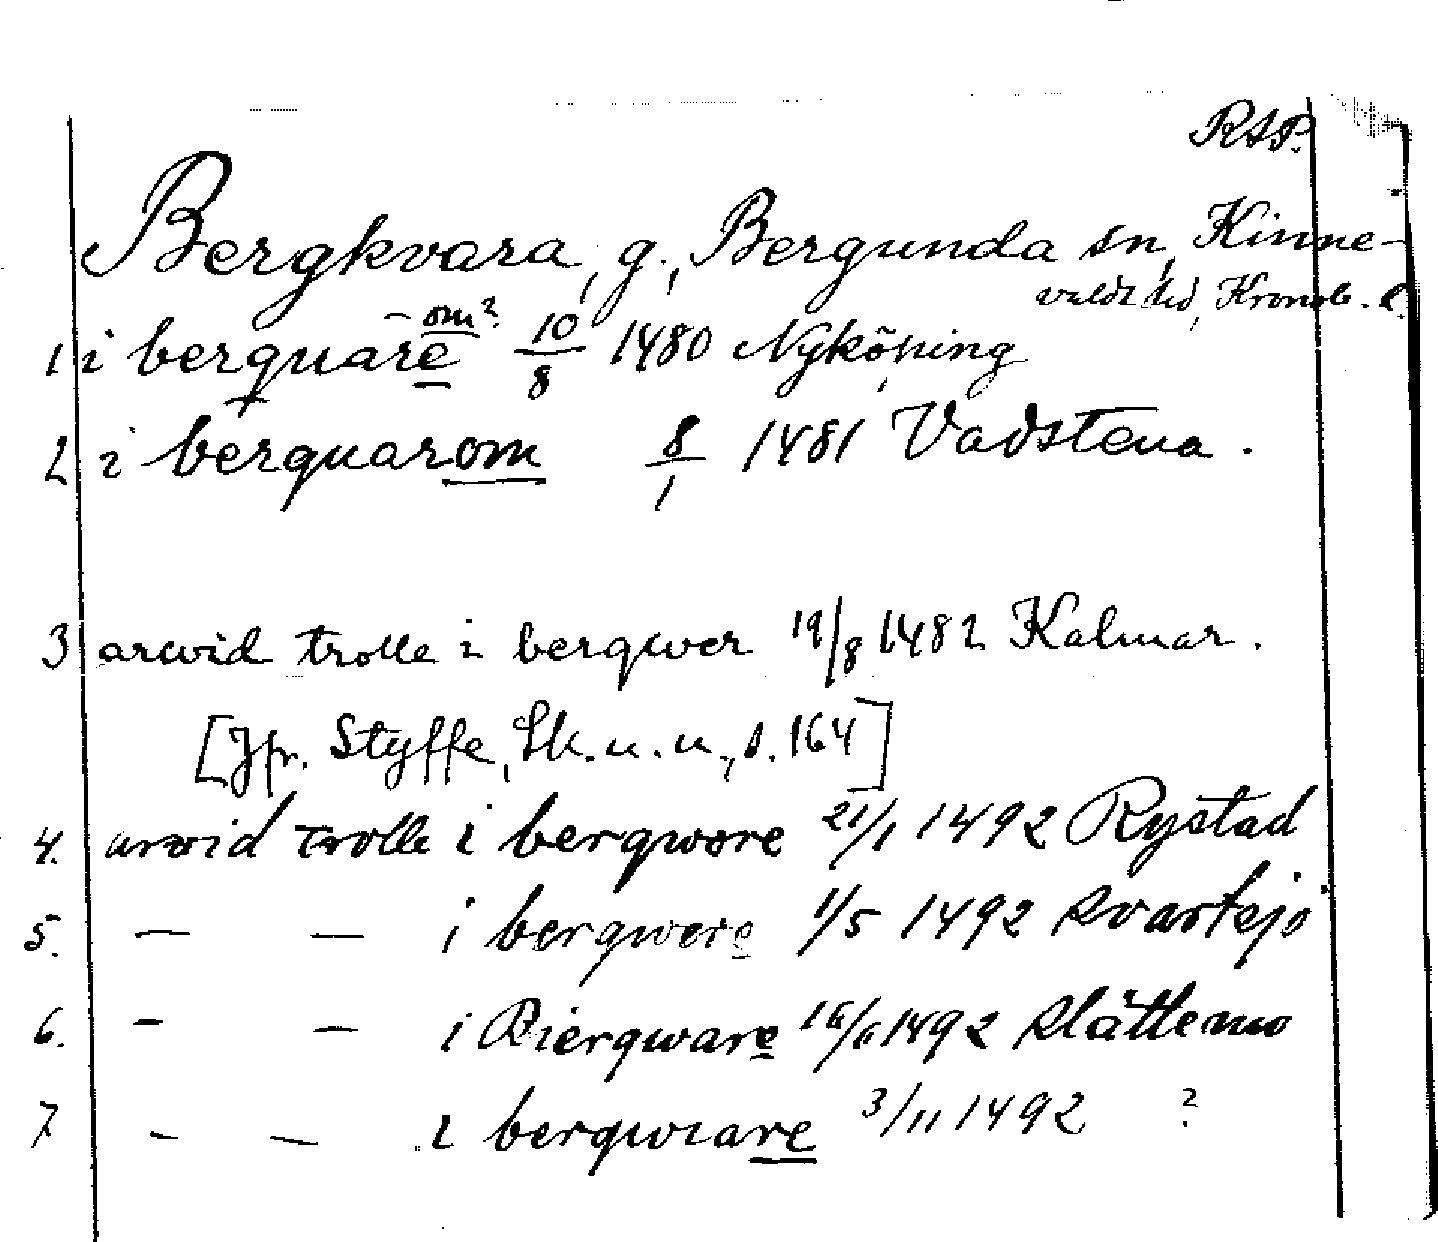 RAP.
Bergkvara, g., Bergunda sn, Kinne-
valds hd, Kronob. l.
1 i berquare -om? 10/8 1480 Nyköping
2 i berquarom 8/1 1481 Vadstena.
3 arwid trolle i berqwer 19/8 1482 Kalmar.
[Jfr. Styffe, Sk. u. u., s. 164]
4. arvid trolle i bergwore 21/1 1492 Rystad
5. — — i bergwere 1/5 1492
6. - — i Biergware 16/6 1492 Slättemo
7. - — i bergwiare 3/11 1492 ?